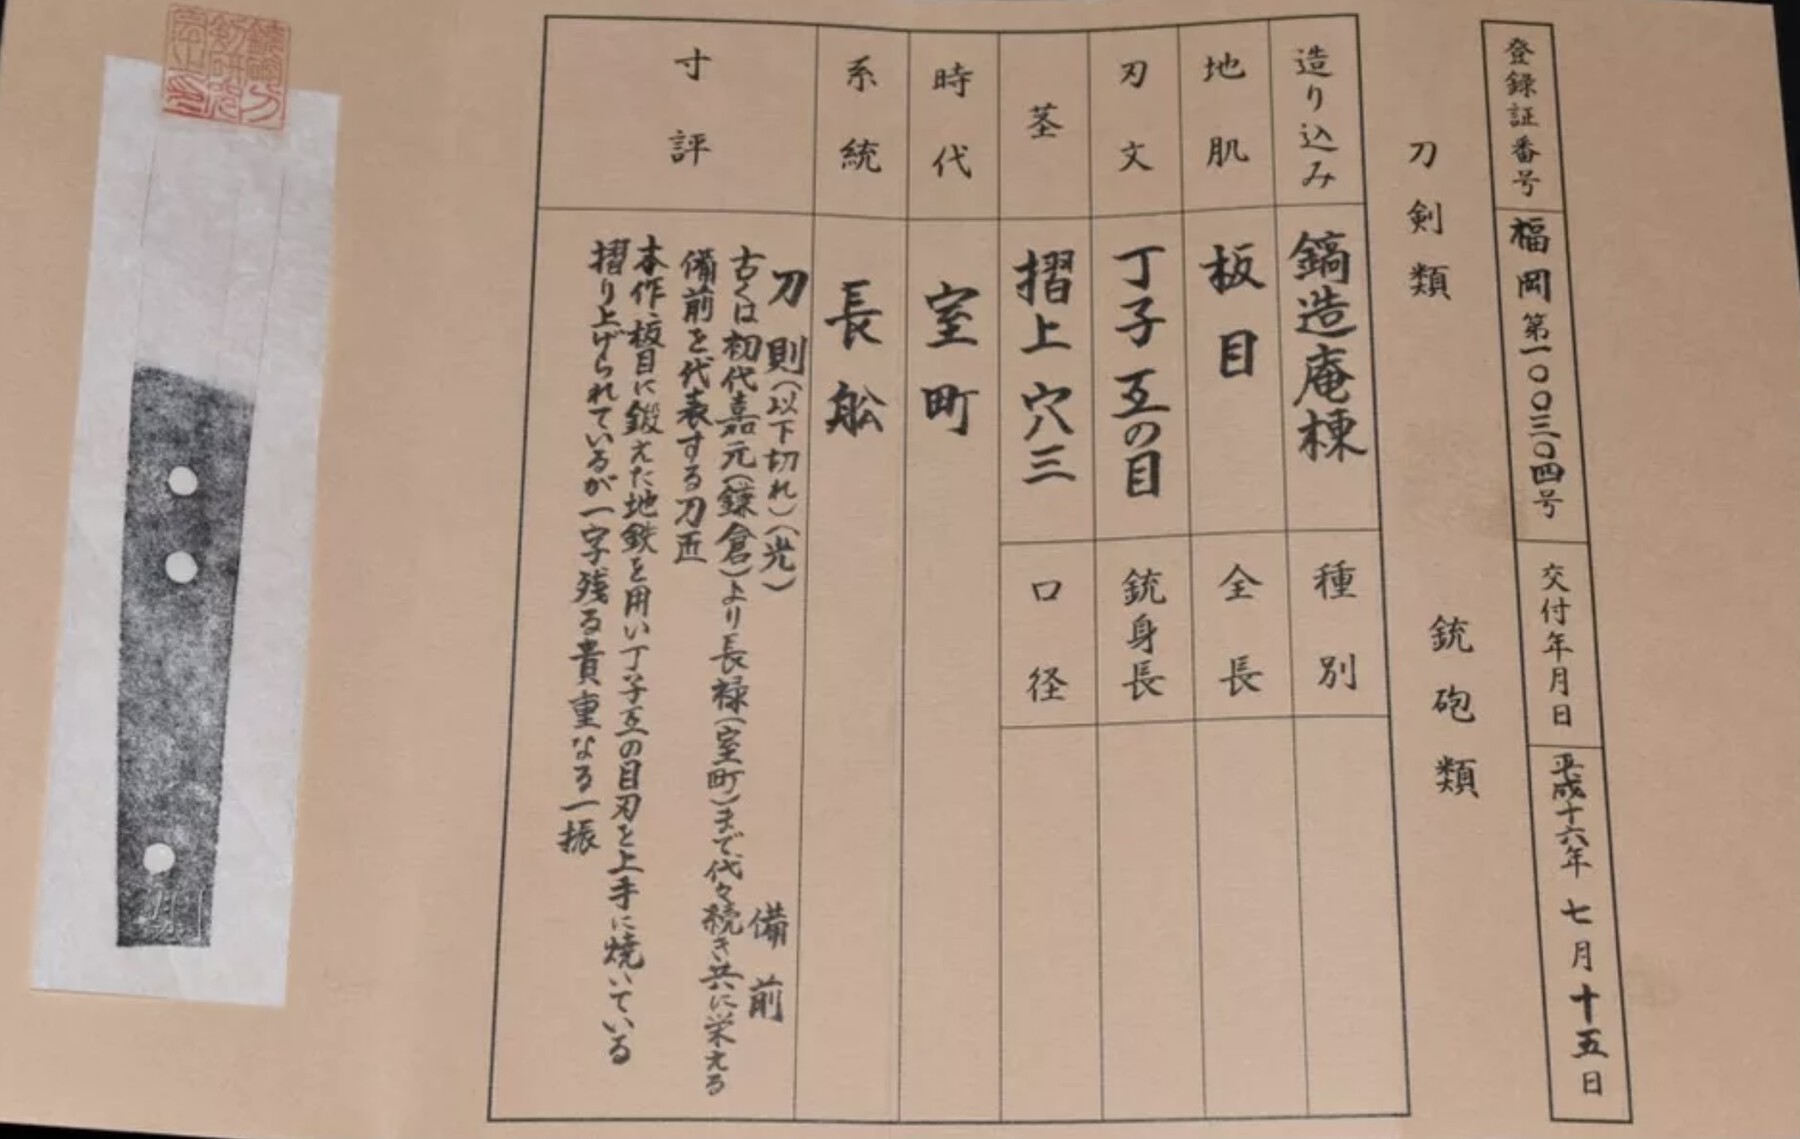 登録証番号 福岡第一〇〇三〇四号 交付年月日 平成十六年七月十五日
刀剣類 銃砲類
造り込み 鎬造庵棟 種別
地肌 板目 全長
刃文 丁子互の目 銃身長
茎 摺上穴三 口径
時代 室町
系統 長舩
寸評
刀 則(以下切れ)(光) 備前
古くは初代嘉元(鎌倉)より長禄(室町)まで代々続き共に栄える
備前を代表する刀匠
本作、板目に鍛えた地鉄を用い丁子互の目刃を上手に焼いている
摺り上げられているが一字残る貴重なる一振
則